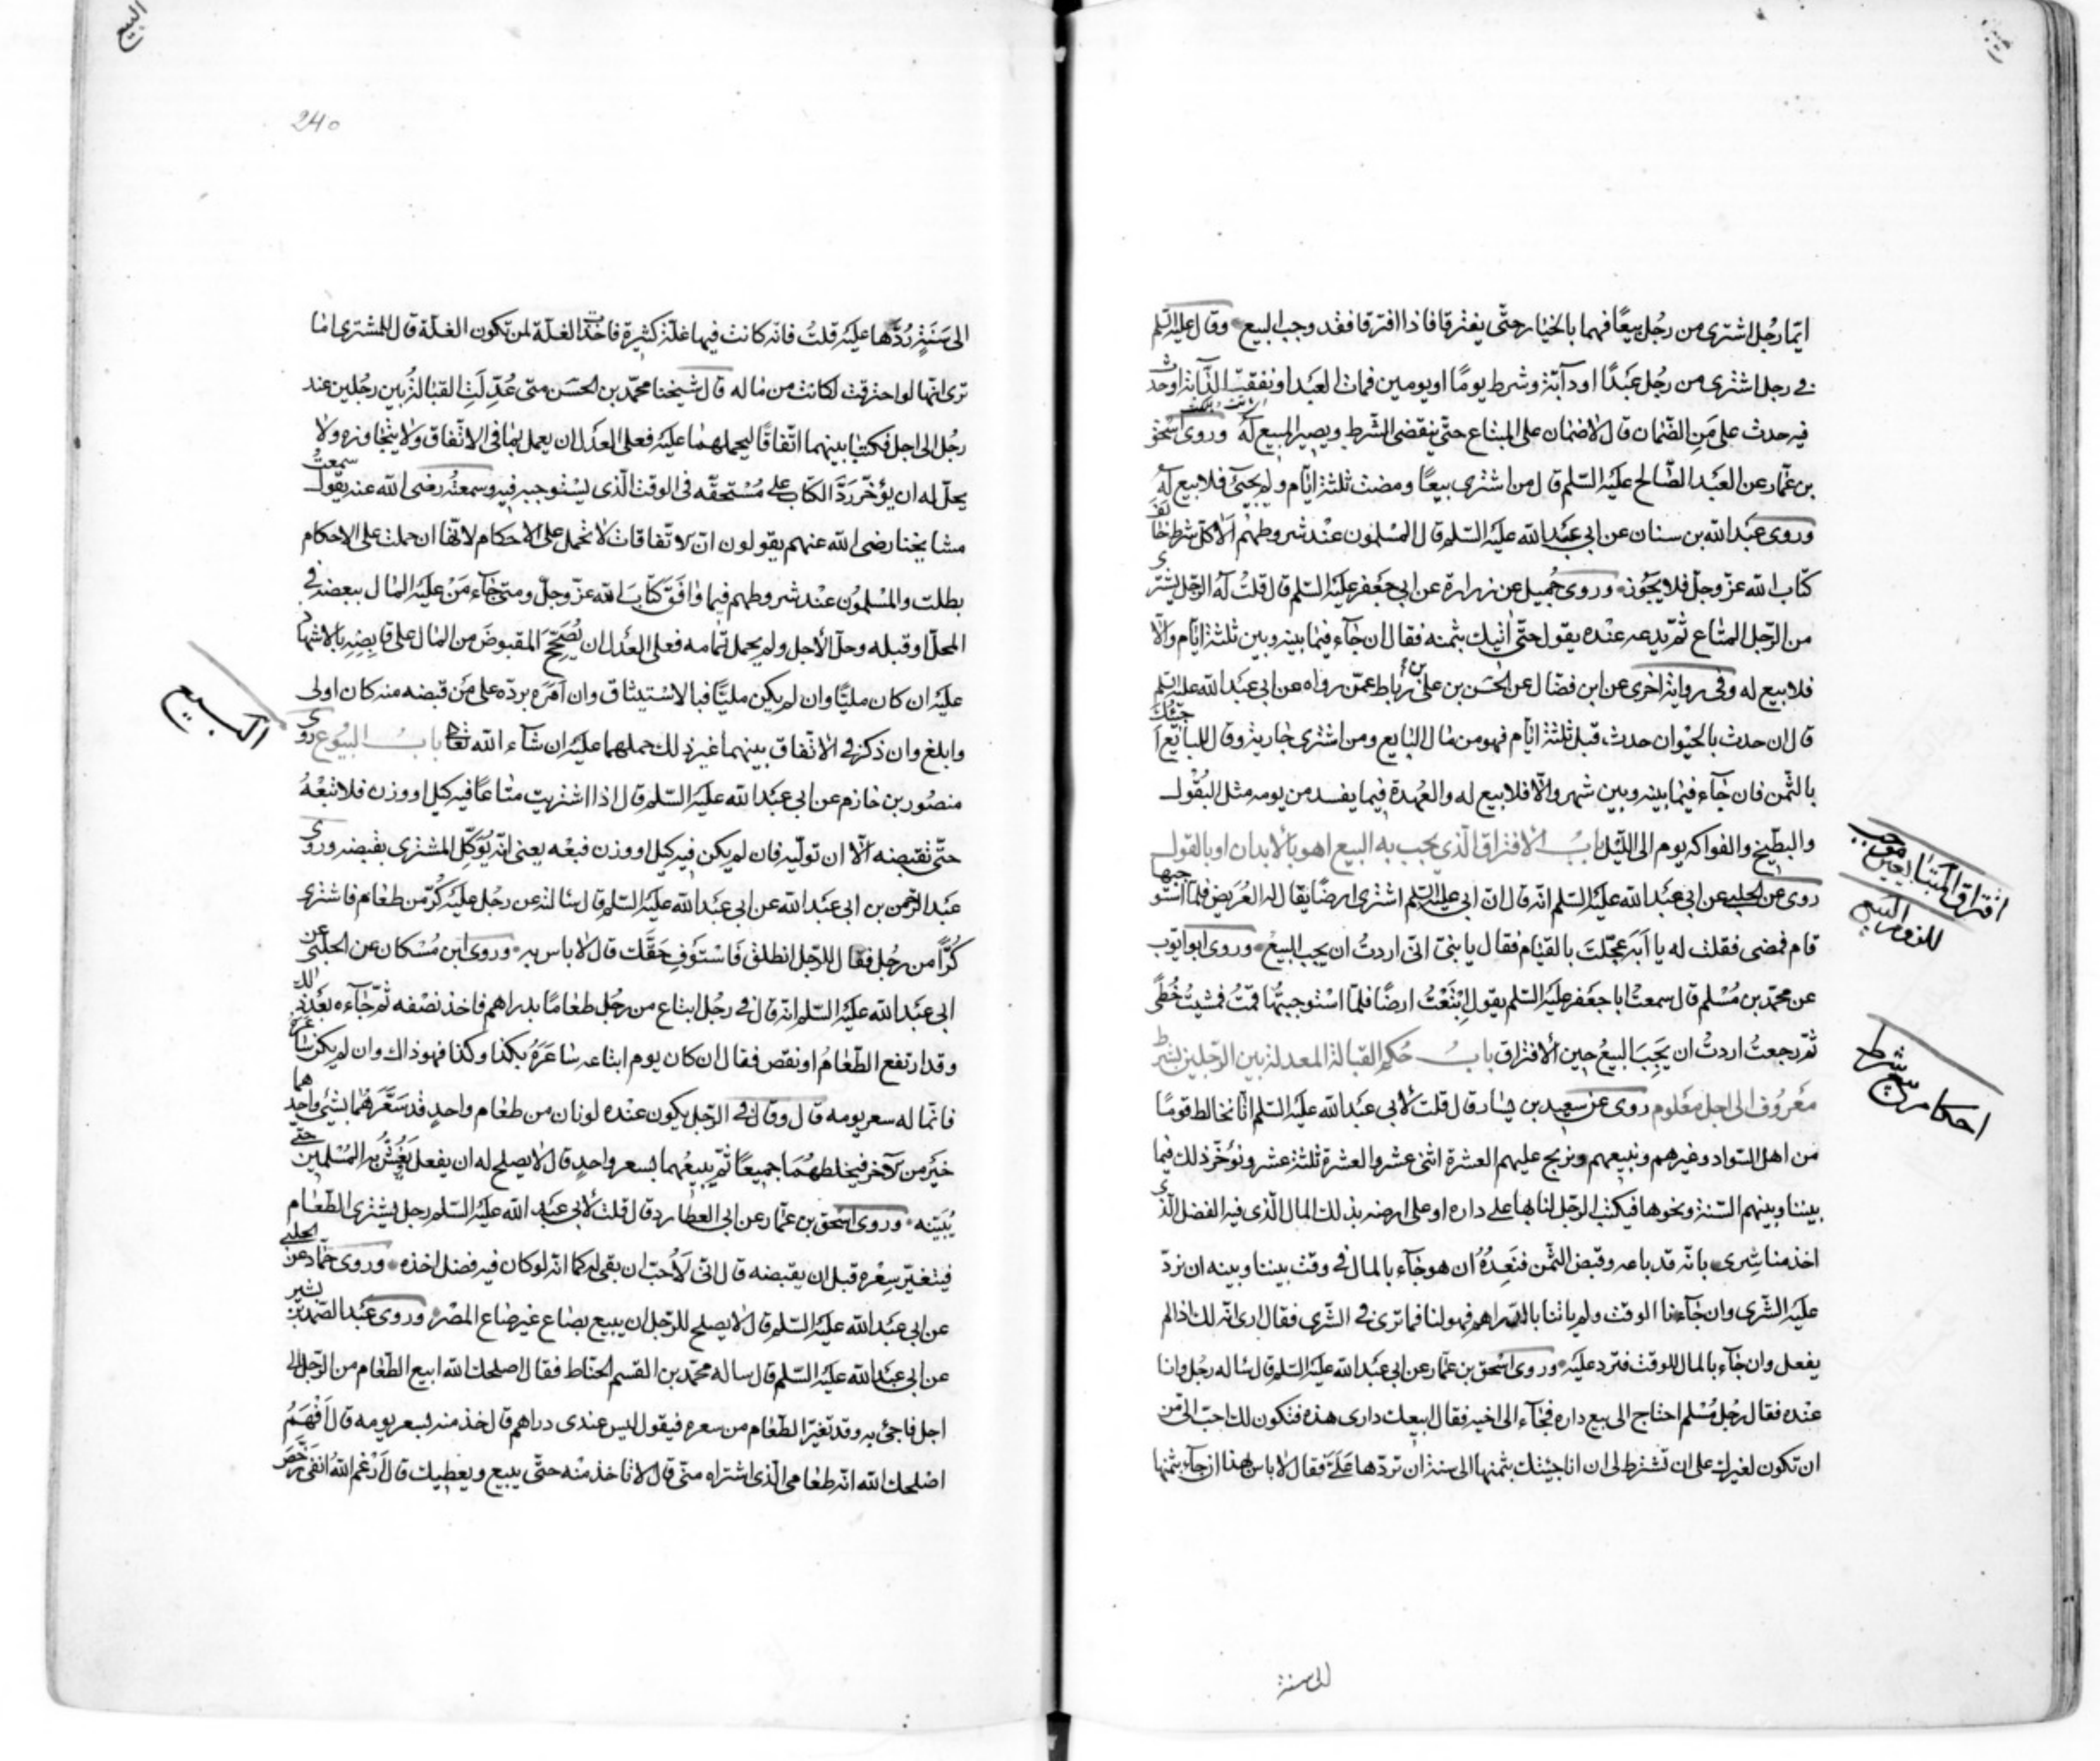 ايّما رجُل اشترى من رجُل بيعًا فهما بالخيار حتّى يفترقا فاذا افترقا فقد وجب البيع وقال عليه السّلم
في رجل اشترى من رجُل عبدًا او دآبّة وشرط يومًا او يومين فمات العبد او نفقت الدّابّة او حدث
فيه حدث على مَنِ الضّمان قال لا ضمان على المبتاع حتّى ينقضى الشّرط ويصير المبيع له وروى اسحٰق
بن عمّار عن العبد الصّالح عليه السّلم قال من اشترى بيعًا ومضت ثلثة ايّام ولم يجئ فلا بيع له
وروى عبد الله بن سنان عن ابى عبد الله عليه السّلم قال المسلمون عند شروطهم الّا كلّ شرط خالف
كتاب الله عزّ وجلّ فلا يجوز وروى جميل عن زرارة عن ابى جعفر عليه السّلم قال قلتُ له الرّجل يشترى
من الرّجل المتاع ثمّ يدعه عنده يقول حتّى اتيك بثمنه فقال ان جآء فيما بينه وبين ثلثة ايّام والّا
فلا بيع له وفى رواية اخرى عن ابن فضّال عن الحسن بن على بن رباط عمّن رواه عن ابى عبد الله عليه السّلم
قال ان حدث بالحيوان حدث قبل ثلثة ايّام فهو من مال البايع ومن اشترى جارية وقال للبايع اجيئك
بالثّمن فان جآء فيما بينه وبين شهر والّا فلا بيع له والعهدة فيما يفسد من يومه مثل البقول
والبطّيخ والفواكه يوم الى اللّيل باب الافتراق الّذى يجب به البيع اهو بالابدان او بالقول
روى عن الحلبى عن ابى عبد الله عليه السّلم انّه قال انّ ابى عليه السّلم اشترى ارضًا يقال لها العريض فلمّا استوجبها
قام فمضى فقلت له يا ابه عجّلت بالقيام فقال يا بنىّ انّى اردتُ ان يجب البيع وروى ابو ايّوب
عن محمّد بن مُسلم قال سمعتُ ابا جعفر عليه السّلم يقول ابتعتُ ارضًا فلمّا استوجبتُها قمتُ فمشيتُ خُطًى
ثمّ رجعتُ اردتُ ان يجب البيعُ حين الافتراق باب حكم القبالة المعدلة بين الرّجلين بشرط
معروف الى اجل معلوم روى عن سعيد بن يسار قال قلت لابى عبد الله عليه السّلم انّا نخالط قومًا
من اهل السّواد وغيرهم ونبيعهم ونربح عليهم العشرة اثنى عشر والعشرة ثلثة عشر ونؤخّر ذلك فيما
بيننا وبينهم السّنة ونحوها فيكتب الرّجل لنا بها على داره او على ارضه بذلك المال الّذى فيه الفضل الّذى
اخذ منا شرى بانّه قد باعه وقبض الثّمن فنعدُه ان هو جآء بالمال فى وقت بيننا وبينه ان نردّ
عليه الشّرى وان جآءنا الوقت ولم ياتنا بالدّراهم فهو لنا فما ترى فى الشّرى فقال ارى انّه لك اذا لم
يفعل وان جآء بالمال للوقت فتردّ عليه وروى اسحٰق بن عمّار عن ابى عبد الله عليه السّلم قال ساله رجُل وانا
عنده فقال رجُل مُسلم احتاج الى بيع داره فجآء الى اخيه فقال ابيعك دارى هذه فتكون لك احبّ الىّ من
ان تكون لغيرك على ان تشترط لى ان انا جئتك بثمنها الى سنة ان تردّها علَىّ فقال لا باس بهذا ان جآء بثمنها
الى سنة
افتراق المتبايعين موجب
للزوم البيع
احكام بيع شرط
البيع
240
الى سَنَةٍ رُدَّها عليه قلتُ فانّه كانت فيها غلّة كثيرة فاخذت الغلّة لمن تكون الغلّة قال للمشترى اما
ترى انّها لو احترقت لكانت من ماله قال شيخنا محمّد بن الحسَن متى عُدِّلَتِ القبالة بين رجُلين عند
رجُل الى اجل فكتبا بينهما اتّفاقًا ليحملهما عليه فعلى العدل ان يعمل بما فى الاتّفاق ولا يتجاوزه ولا
يحلّ له ان يؤخّر ردّ الكتاب على مُستحقّه فى الوقت الّذى يستوجبه فيه وسمعته رضى الله عنه يقول سمعتُ
مشايخنا رضى الله عنهم يقولون انّ الاتّفاقات لا تحمل على الاحكام لانّها ان حملت على الاحكام
بطلت والمُسلمون عند شروطهم فيما وافق كتاب الله عزّ وجلّ ومتى جآء مَنْ عليه المال ببعضه فى
المحلّ وقبله وحلّ الاجل ولم يحمل تمامه فعلى العدل ان يُصَحّحَ المقبوضَ من المال على قابضه بالاشهاد
عليه ان كان مليًّا وان لم يكن مليًّا فبالاستيثاق وان امره بردّه على من قبضه منه كان اولى
وابلغ وان ذكر فى الاتّفاق بينهما غير ذلك حملهما عليه ان شآء الله تعالى باب البيُوع روى
منصُور بن حازم عن ابى عبد الله عليه السّلم قال اذا اشتريت متاعًا فيه كيل او وزن فلا تبعْهُ
حتّى تقبضه الّا ان تولّيه فان لم يكن فيه كيل او وزن فبعْه يعنى انّه يُوكّل المشترى بقبضه وروى
عبد الرّحمن بن ابى عبد الله عن ابى عبد الله عليه السّلم قال سالته عن رجُل عليه كُرّ من طعام فاشترى
كُرًّا من رجُل فقال للرّجل انطلق فاستوفِ حقّك قال لا باس به وروى ابن مُسكان عن الحلبى عن
ابى عبد الله عليه السّلم انّه قال فى رجُل ابتاع من رجُل طعامًا بدراهم فاخذ نصفه ثمّ جآءه بعد ذلك
وقد ارتفع الطّعامُ او نقص فقال ان كان يوم ابتاعه ساعَرَهُ بكذا وكذا فهو ذاك وان لم يكن ساعره
فانّما له سعر يومه قال وقال فى الرّجل يكون عنده لونان من طعام واحدٍ قد سَعَّرَهُما بشئ واحدهما
خيرٌ من الآخر فيخلطهُما جميعًا ثمّ يبيعُهما بسعر واحدٍ قال لا يصلح له ان يفعل يَغُشُّ به المُسلمين حتّى
يُبَيّنه وروى اسحٰق بن عمّار عن ابى العطارد قال قلت لابى عبد الله عليه السّلم رجل يشترى الطّعام
فيتغيّر سِعْره قبل ان يقبضه قال انّى لَاُحبّ ان يفى له كما انّه لو كان فيه فضل اخذه وروى حمّاد عن الحلبى
عن ابى عبد الله عليه السّلم قال لا يصلح للرّجل ان يبيع بصاع غير صاع المصْر وروى عبد الصّمد بن بشير
عن ابى عبد الله عليه السّلم قال ساله محمّد بن القسم الحنّاط فقال اصلحك الله ابيع الطّعام من الرّجل الى
اجل فاجئ به وقد تغيّر الطّعام من سعره فيقول ليس عندى دراهم قال خذ منه بسعر يومه قال افْهَمُ
اصلحك الله انّه طعامى الّذى اشتراه منّى قال لا تاخذ منْه حتّى يبيع ويعطيك قال اَرْغم اللهُ انفى رخّص
البيع